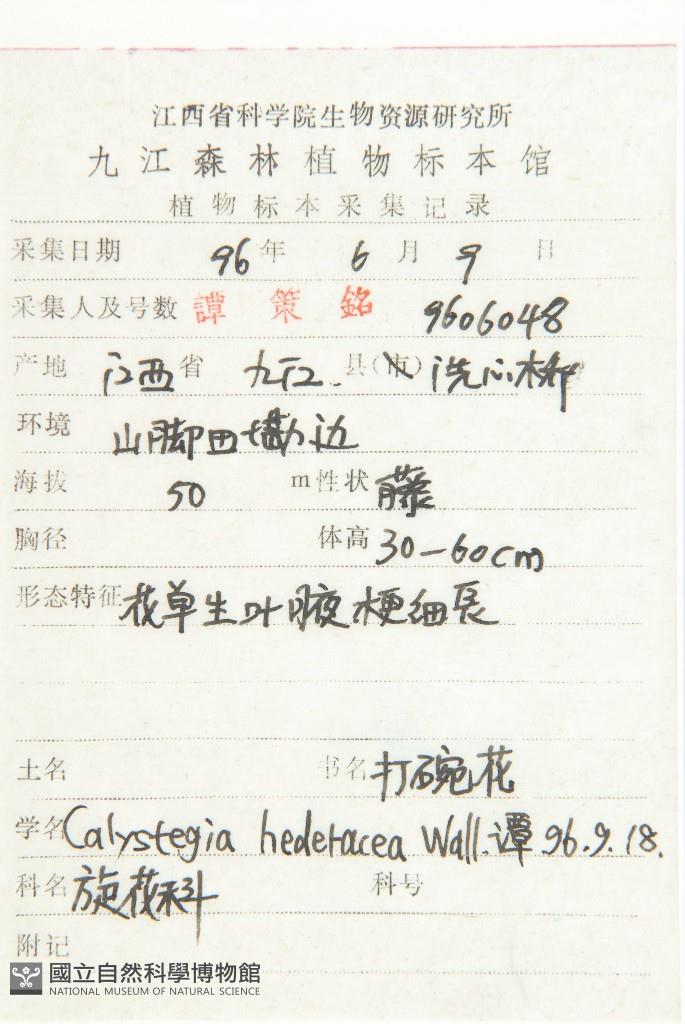 江西省科学院生物资源研究所
九江森林植物标本馆
植物标本采集记录
采集日期 96年 6月 9日
采集人及号数 譚策銘 9606048
产地 江西省 九江 县(市) 洗心桥
环境 山脚田墈边
海拔 50 m 性状 藤
胸径 体高 30-60cm
形态特征 花单生叶腋,梗细长
土名 书名 打碗花
学名 Calystegia hederacea Wall. 谭 96.9.18.
科名 旋花科 科号
附记
國立自然科學博物館
NATIONAL MUSEUM OF NATURAL SCIENCE